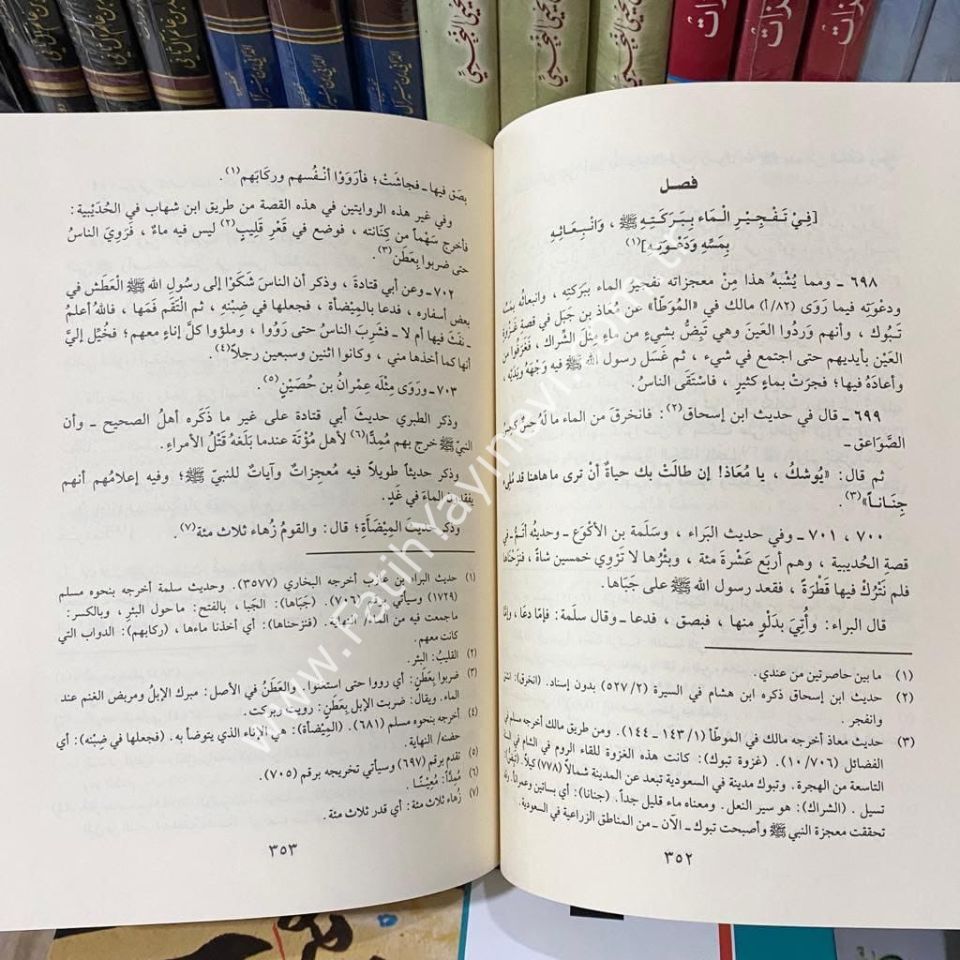 فصل
[فِيْ تَفْجِيْرِ الْمَاءِ بِبَرَكَتِهِ ﷺ ، وَانْبِعَاثِهِ
بِمَسِّهِ وَدَعْوَتِهِ](١)
٦٩٨ ـ ومما يُشْبِهُ هذا مِنْ معجزاته تفجيرُ الماء ببَرَكتِه ، وانبعاثُه بمَسِّه
ودعْوَتِه فيما رَوَى (٨٢/أ) مالك في «المُوَطَّأ» عن مُعاذ بن جَبَل في قصة غَزْوةِ
تَبُوك ، وأنهم وَرَدُوا العَينَ وهي تَبِضُّ بشيءٍ من ماءٍ مِثْلِ الشِّراك ، فَغَرَفُوا من
العَيْنِ بأيديهم حتى اجتمع في شيء ، ثم غَسَل رسول الله ﷺ فيه وَجْهَهُ ويَدَيْه ،
وأعادَهُ فيها؛ فجرَتْ بماءٍ كثيرٍ ، فاسْتَقَى الناسُ.
٦٩٩ ـ قال في حديث ابن إسحاق(٢): فانخرقَ من الماء ما لَهُ حِسٌّ كحِسِّ
الصَّوَاعق ـ
ثم قال: «يُوشكُ ، يا مُعَاذ! إن طالَتْ بك حياةٌ أنْ ترى ماهاهنا قد مُلِىء
جِنَاناً»(٣).
٧٠٠ ، ٧٠١ ـ وفي حديث البَراء ، وسَلَمة بن الأكْوَع ـ وحديثُه أتمُّ ـ في
قصة الحُدَيبية ، وهم أربَع عَشْرَةَ مئة ، وبئْرُها لا تَرْوِي خمسين شاةً ، فنَزَحْناها
فلم نَتْرُكْ فيها قَطْرَةً ، فقعد رسول الله ﷺ على جَبَاها.
قال البراء: وأُتِيَ بدَلْوٍ منها ، فبصق ، فدعا ـ وقال سلَمة: فإمّا دعَا ، وإمّا
(١) ما بين حاصرتين من عندي.
(٢) حديث ابن إسحاق ذكره ابن هشام في السيرة (٢/٥٢٧) بدون إسناد. (انخرق):
وانفجر .
(٣) حديث معاذ أخرجه مالك في الموطأ (١/١٤٣ ـ ١٤٤). ومن طريق مالك أخرجه مسلم في
الفضائل (٧٠٦/١٠). (غزوة تبوك): كانت هذه الغزوة للقاء الروم في الشام في السنة
التاسعة من الهجرة. وتبوك مدينة في السعودية تبعد عن المدينة شمالاً (٧٧٨) كيلاً.
تسيل . (الشراك): هو سير النعل. ومعناه ماء قليل جداً. (جنانا): أي بساتين وعمراناً.
تحققت معجزة النبي ﷺ وأصبحت تبوك ـ الآن ـ من المناطق الزراعية في السعودية.
٣٥٢
بصَق فيها ـ فجاشَتْ؛ فأرَوَوْا أنْفُسهم وركابَهم(١).
وفي غير هذه الروايتين في هذه القصة من طريق ابن شهاب في الحُدَيْبية:
فأخرج سَهْماً من كِنَانته ، فوضع في قَعْرِ قَلِيبٍ(٢) ليس فيه ماءٌ ، فرَوِيَ الناسُ
حتى ضربوا بِعَطَن(٣).
٧٠٢ ـ وعن أبي قتادة ، وذكر أن الناسَ شَكَوْا إلى رسولِ الله ﷺ الْعَطَش في
بعض أسفاره ، فدعا بالمِيْضأة ، فجعلها في ضِبْنِه ، ثم الْتَقَم فَمَها ، فاللهُ أعلمُ
ـ نفَثَ فيها أم لا ـ فشَرِبَ الناسُ حتى رَوُوا ، وملؤوا كلَّ إناءٍ معهم؛ فخُيِّل إليَّ
أنها كما أخذها مني ، وكانوا اثنين وسبعين رجلاً(٤).
٧٠٣ ـ ورَوَى مثلَه عِمرانُ بن حُصَيْنٍ(٥).
وذكر الطبري حديثَ أبي قتادة على غير ما ذَكَره أهلُ الصحيح ـ وأن
النبيَّ ﷺ خرج بهم مُمِدّاً(٦) لأهل مُؤْتَة عندما بَلَغهُ قَتْلُ الأمراءِ.
وذكر حديثاً طويلاً فيه مُعجزاتٌ وآياتٌ للنبيّ ﷺ؛ وفيه إعلامُهم أنهم
يفقدون الماءَ في غَدٍ.
وذكر حديثَ المِيْضَأَةِ؛ قال: والقومُ زُهاء ثلاث مئة(٧).
(١) حديث البراء بن عازب أخرجه البخاري (٣٥٧٧). وحديث سلمة أخرجه بنحوه مسلم
(١٧٢٩) وسيأتي برقم (٧٠٦). (جَبَاها): الجَبا ، بالفتح: ما حول البئرِ ، وبالكسر:
ماجمعت فيه من الماء/ النهاية. (فنزحناها): أي أخذنا ماءها ، (ركابهم): الدواب التي
كانت معهم .
(٢) القليبُ: البئر .
(٣) ضربوا بِعَطَنٍ: أي رووا حتى استعنوا. والعَطَنُ في الأصل: مبرك الإبلُ ومربض الغنم عند
الماء. ويقال: ضربت الإبل بِعَطَنٍ: رويت وبركت.
(٤) أخرجه بنحوه مسلم (٦٨١). (المِيْضأة): هي الإناء الذي يتوضأ به . (فجعلها في ضِبْنه): أي
حضنه/ النهاية.
(٥) تقدم برقم (٦٩٧) وسيأتي تخريجه برقم (٧٠٥)
(٦) مُمِدّاً: مُعِيْناً .
(٧) زُهاء ثلاث مئة: أي قدر ثلاث مئة .
٣٥٣
www.FatihYayinevim.